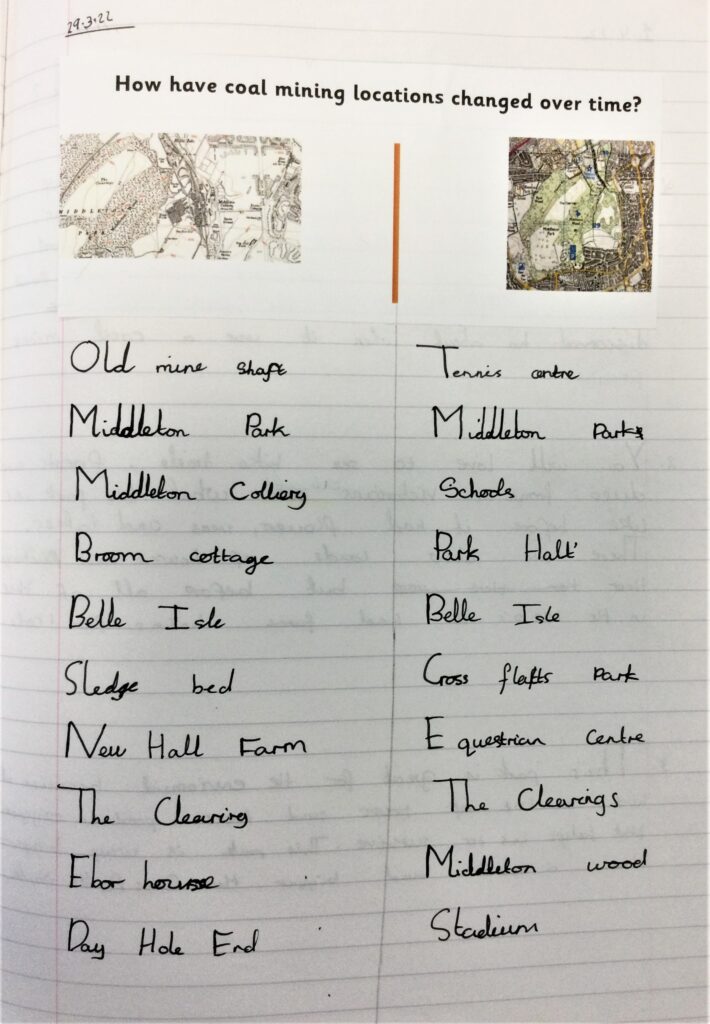 29.3.22
How have coal mining locations changed over time?
Old mine shaft
Middleton Park
Middleton Colliery
Broom cottage
Belle Isle
Sledge bed
New Hall Farm
The Clearing
Ebor house
Day Hole End
Tennis centre
Middleton Park
Schools
Park Halt
Belle Isle
Cross flatts Park
Equestrian Centre
The Clearings
Middleton wood
Stadium